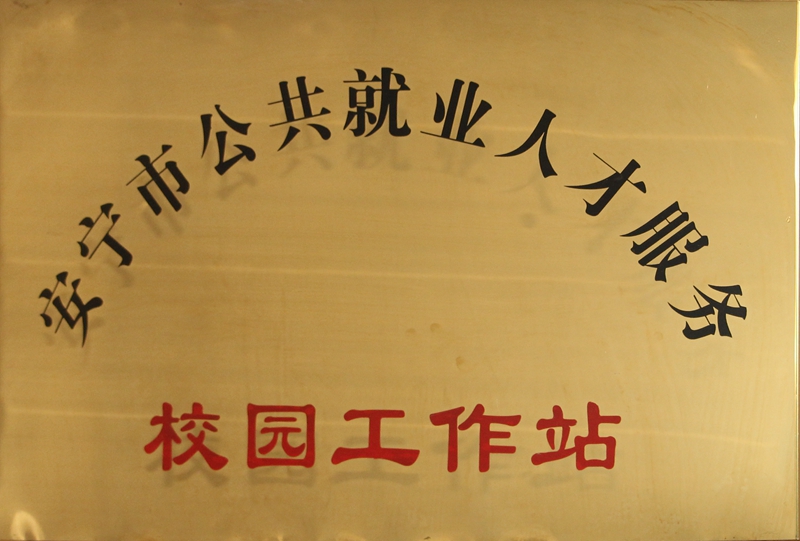 安宁市公共就业人才服务
校园工作站